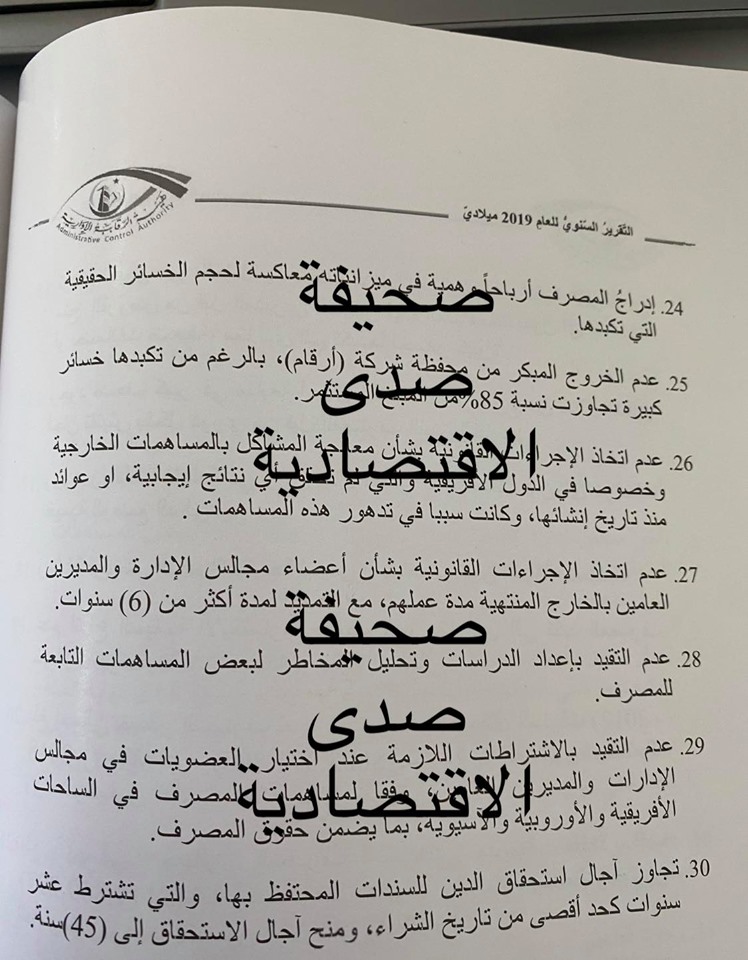 هيئة الرقابة الإدارية
Administrative Control Authority
التقرير السنوي للعام 2019 ميلادي
24. إدراجُ المصرف أرباحاً وهمية في ميزانياته معاكسة لحجم الخسائر الحقيقية
التي تكبدها.
25. عدم الخروج المبكر من محفظة شركة (أرقام)، بالرغم من تكبدها خسائر
كبيرة تجاوزت نسبة 85% من المبلغ المستثمر.
26. عدم اتخاذ الإجراءات القانونية بشأن معالجة المشاكل بالمساهمات الخارجية
وخصوصا في الدول الأفريقية والتي لم تحقق أي نتائج إيجابية، او عوائد
منذ تاريخ إنشائها، وكانت سببا في تدهور هذه المساهمات .
27. عدم اتخاذ الإجراءات القانونية بشأن أعضاء مجالس الإدارة والمديرين
العامين بالخارج المنتهية مدة عملهم، مع التمديد لمدة أكثر من (6) سنوات.
28. عدم التقيد بإعداد الدراسات وتحليل المخاطر لبعض المساهمات التابعة
للمصرف.
29. عدم التقيد بالاشتراطات اللازمة عند اختيار العضويات في مجالس
الإدارات والمديرين العامين، وفقا لمساهمات المصرف في الساحات
الأفريقية والأوروبية والآسيوية، بما يضمن حقوق المصرف.
30. تجاوز آجال استحقاق الدين للسندات المحتفظ بها، والتي تشترط عشر
سنوات كحد أقصى من تاريخ الشراء، ومنح آجال الاستحقاق إلى (45)سنة.
صحيفة
صدى
الاقتصادية
صحيفة
صدى
الاقتصادية